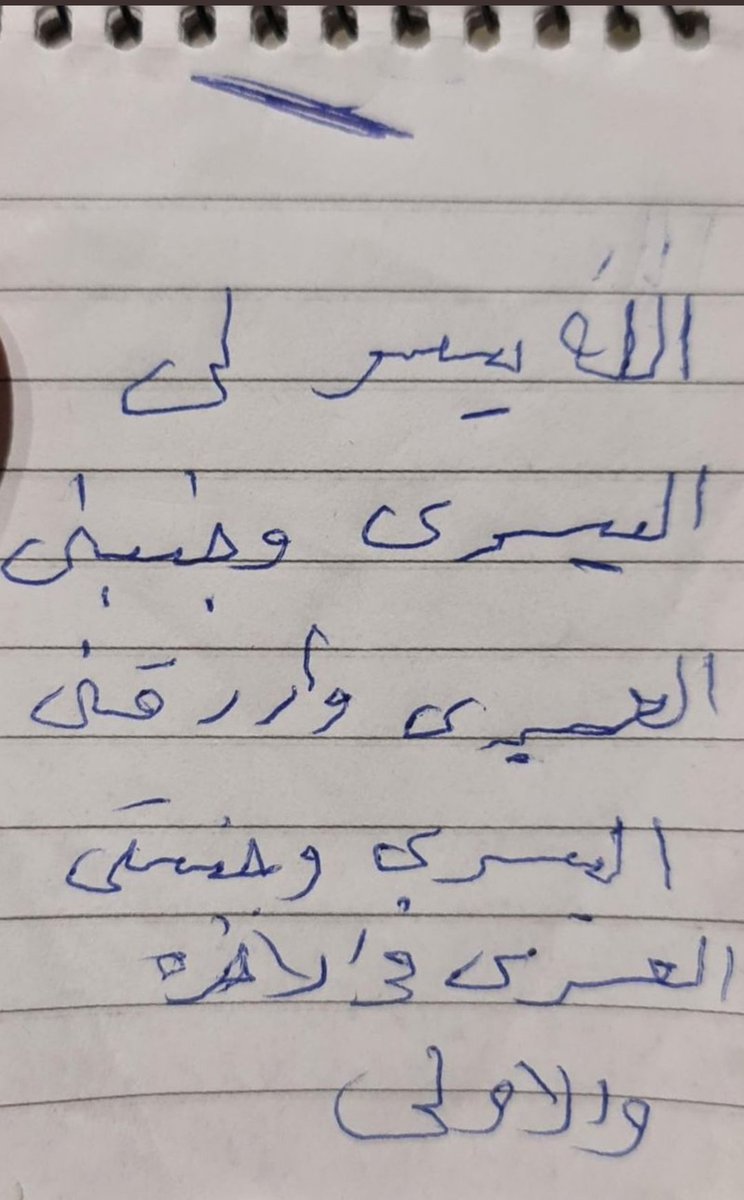 الله يسر لى
اليسرى وجنبنى
العسرى وارزقنى
اليسرى وجنبنى
العسرى فى الاخره
والاولى